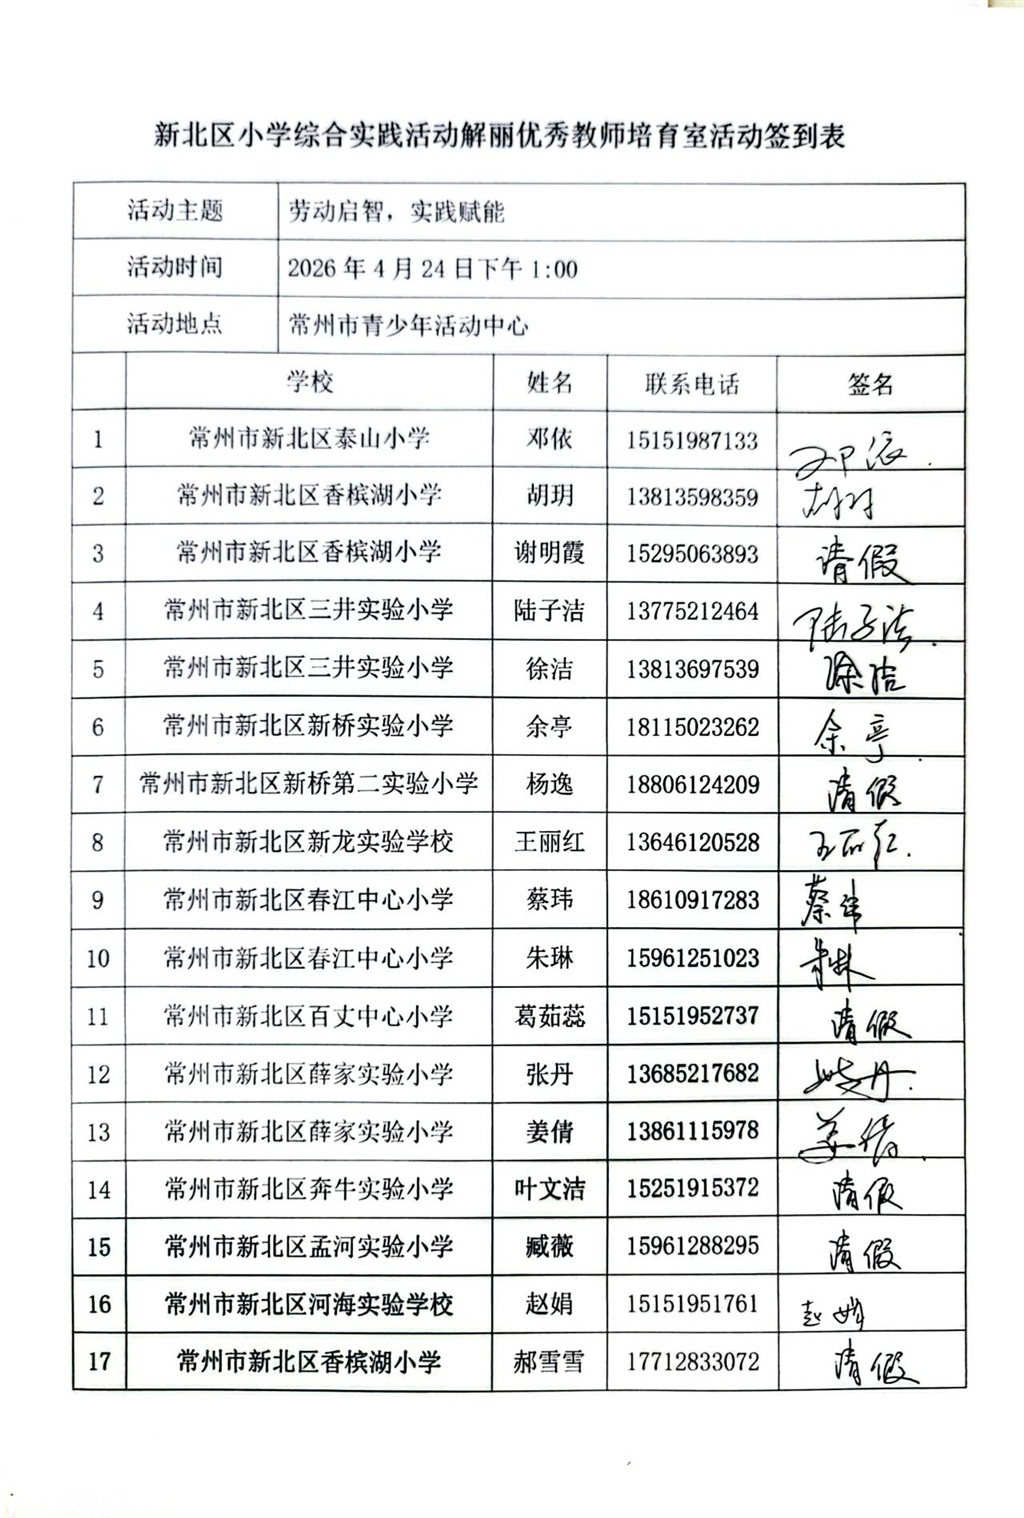 新北区小学综合实践活动解丽优秀教师培育室活动签到表
活动主题 劳动启智，实践赋能
活动时间 2026年4月24日下午1:00
活动地点 常州市青少年活动中心
学校 姓名 联系电话 签名
1 常州市新北区泰山小学 邓依 15151987133 邓依.
2 常州市新北区香槟湖小学 胡玥 13813598359 胡玥
3 常州市新北区香槟湖小学 谢明霞 15295063893 请假
4 常州市新北区三井实验小学 陆子洁 13775212464 陆子洁.
5 常州市新北区三井实验小学 徐洁 13813697539 徐洁
6 常州市新北区新桥实验小学 余亭 18115023262 余亭.
7 常州市新北区新桥第二实验小学 杨逸 18806124209 请假
8 常州市新北区新龙实验学校 王丽红 13646120528 王丽红.
9 常州市新北区春江中心小学 蔡玮 18610917283 蔡玮
10 常州市新北区春江中心小学 朱琳 15961251023 朱琳
11 常州市新北区百丈中心小学 葛茹蕊 15151952737 请假
12 常州市新北区薛家实验小学 张丹 13685217682 张丹.
13 常州市新北区薛家实验小学 姜倩 13861115978 姜倩.
14 常州市新北区奔牛实验小学 叶文洁 15251915372 请假
15 常州市新北区孟河实验小学 臧薇 15961288295 请假
16 常州市新北区河海实验学校 赵娟 15151951761 赵娟
17 常州市新北区香槟湖小学 郝雪雪 17712833072 请假